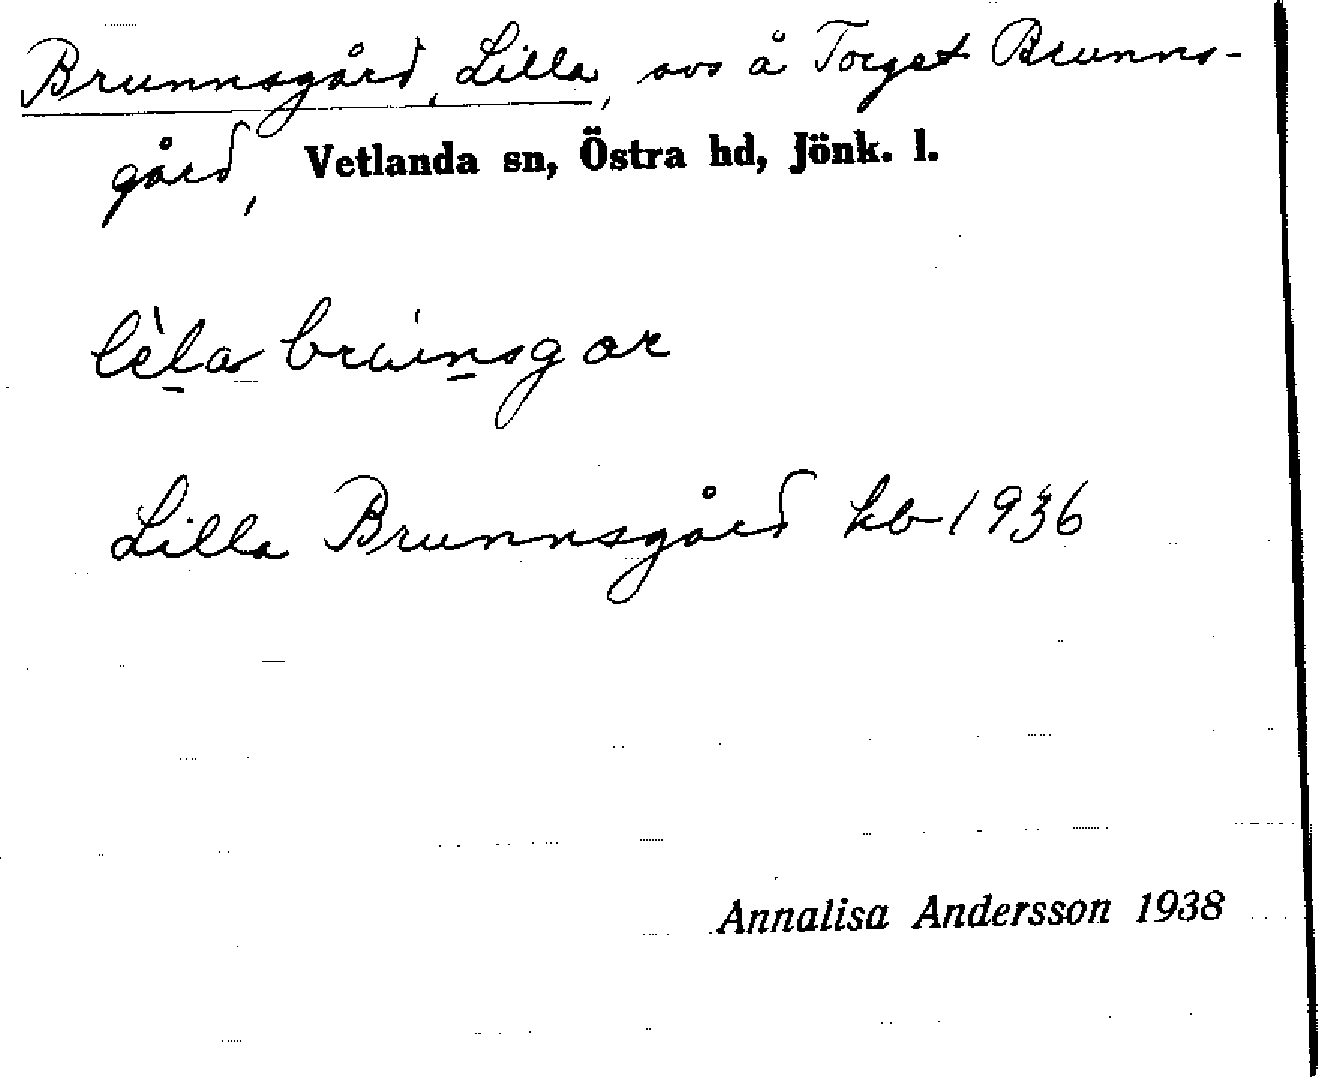 Brunnsgård, Lilla, avs å Torget Brunns-
gård, Vetlanda sn, Östra hd, Jönk. l.
Lilla Brunnsgård kb 1936
Annalisa Andersson 1938